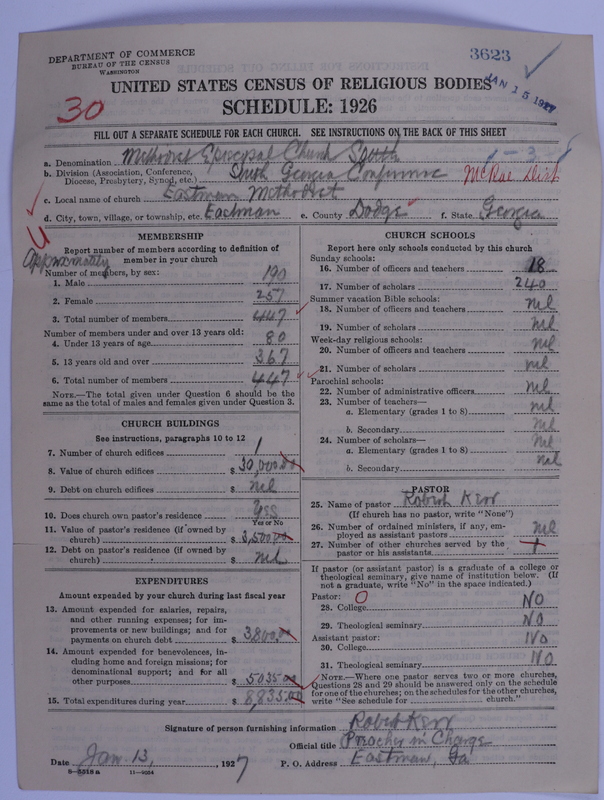 DEPARTMENT OF COMMERCE
BUREAU OF THE CENSUS
WASHINGTON
3623
JAN 15 1927
UNITED STATES CENSUS OF RELIGIOUS BODIES
SCHEDULE: 1926
30
FILL OUT A SEPARATE SCHEDULE FOR EACH CHURCH. SEE INSTRUCTIONS ON THE BACK OF THIS SHEET
a. Denomination Methodist Episcopal Church South
b. Division (Association, Conference, Diocese, Presbytery, Synod, etc.) South Georgia Conference McRae Dist
c. Local name of church Eastman Methodist
d. City, town, village, or township, etc. Eastman e. County Dodge f. State Georgia
MEMBERSHIP
Report number of members according to definition of
member in your church
Approximately
Number of members, by sex:
1. Male 190
2. Female 257
3. Total number of members 447
Number of members under and over 13 years old:
4. Under 13 years of age 80
5. 13 years old and over 367
6. Total number of members 447
NOTE.—The total given under Question 6 should be the
same as the total of males and females given under Question 3.
CHURCH BUILDINGS
See instructions, paragraphs 10 to 12
7. Number of church edifices 1
8. Value of church edifices $ 30,000.00
9. Debt on church edifices $ nil
10. Does church own pastor's residence? Yes
Yes or No
11. Value of pastor's residence (if owned by
church) $ 3,500.00
12. Debt on pastor's residence (if owned by
church) $ nil
EXPENDITURES
Amount expended by your church during last fiscal year
13. Amount expended for salaries, repairs,
and other running expenses; for im-
provements or new buildings; and for
payments on church debt $ 3,800.00
14. Amount expended for benevolences, in-
cluding home and foreign missions; for
denominational support; and for all
other purposes $ 5035.00
15. Total expenditures during year $ 8,835.00
CHURCH SCHOOLS
Report here only schools conducted by this church
Sunday schools:
16. Number of officers and teachers 18
17. Number of scholars 240
Summer vacation Bible schools:
18. Number of officers and teachers nil
19. Number of scholars nil
Week-day religious schools:
20. Number of officers and teachers nil
21. Number of scholars nil
Parochial schools:
22. Number of administrative officers nil
23. Number of teachers—
a. Elementary (grades 1 to 8) nil
b. Secondary nil
24. Number of scholars— nil
a. Elementary (grades 1 to 8)
b. Secondary nil
PASTOR
25. Name of pastor Robert Kerr
(If church has no pastor, write "None")
26. Number of ordained ministers, if any, em-
ployed as assistant pastors nil
27. Number of other churches served by the
pastor or his assistants
If pastor (or assistant pastor) is a graduate of a college or
theological seminary, give name of institution below. (If
not a graduate, write "No" in the space indicated.)
Pastor:
28. College NO
29. Theological seminary NO
Assistant pastor:
30. College NO
31. Theological seminary NO
NOTE.—Where one pastor serves two or more churches,
Questions 28 and 29 should be answered only on the schedule
for one of the churches; on the schedules for the other churches,
write "See schedule for church."
Signature of person furnishing information Robert Kerr
Official title Preacher in Charge
Date Jan 13, 1927 P. O. Address Eastman, Ga
8-5318 a 11-9024